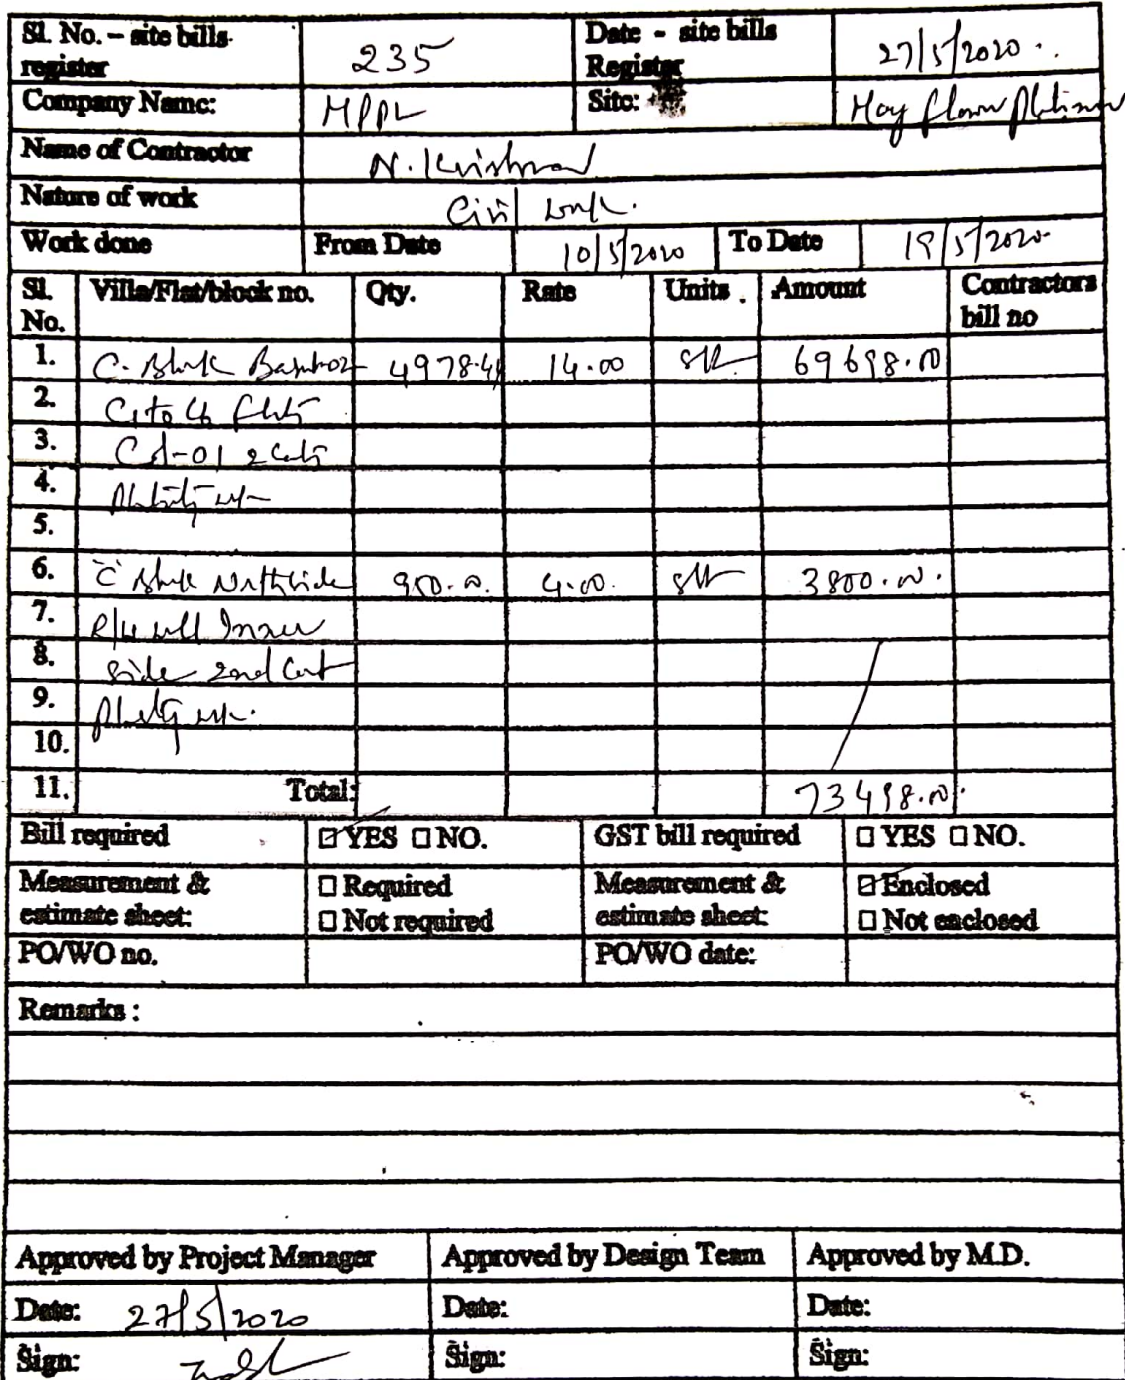 Sl. No. – site bills register 235 Date - site bills Register 27/5/2020.
Company Name: MPPL Site: May flower Platinum
Name of Contractor N. Krishna
Nature of work Civil work.
Work done From Date 10/5/2020 To Date 19/5/2020
Sl. No. Villa/Flat/block no. Qty. Rate Units Amount Contractors bill no
1. C. Block 4978.41 14.00 sft 69698.00
2. C1 to C4 flats
3.
4.
5.
6. "C" Block North side 950.00 4.00 sft 3800.00.
7. R/wall Inner
8. side 2nd Coat
9.
10.
11. Total: 73498.00.
Bill required ☑ YES ☐ NO. GST bill required ☐ YES ☐ NO.
Measurement & estimate sheet: ☐ Required ☐ Not required Measurement & estimate sheet: ☑ Enclosed ☐ Not enclosed
PO/WO no. PO/WO date:
Remarks :
Approved by Project Manager Approved by Design Team Approved by M.D.
Date: 27/5/2020 Date: Date:
Sign: Sign: Sign: